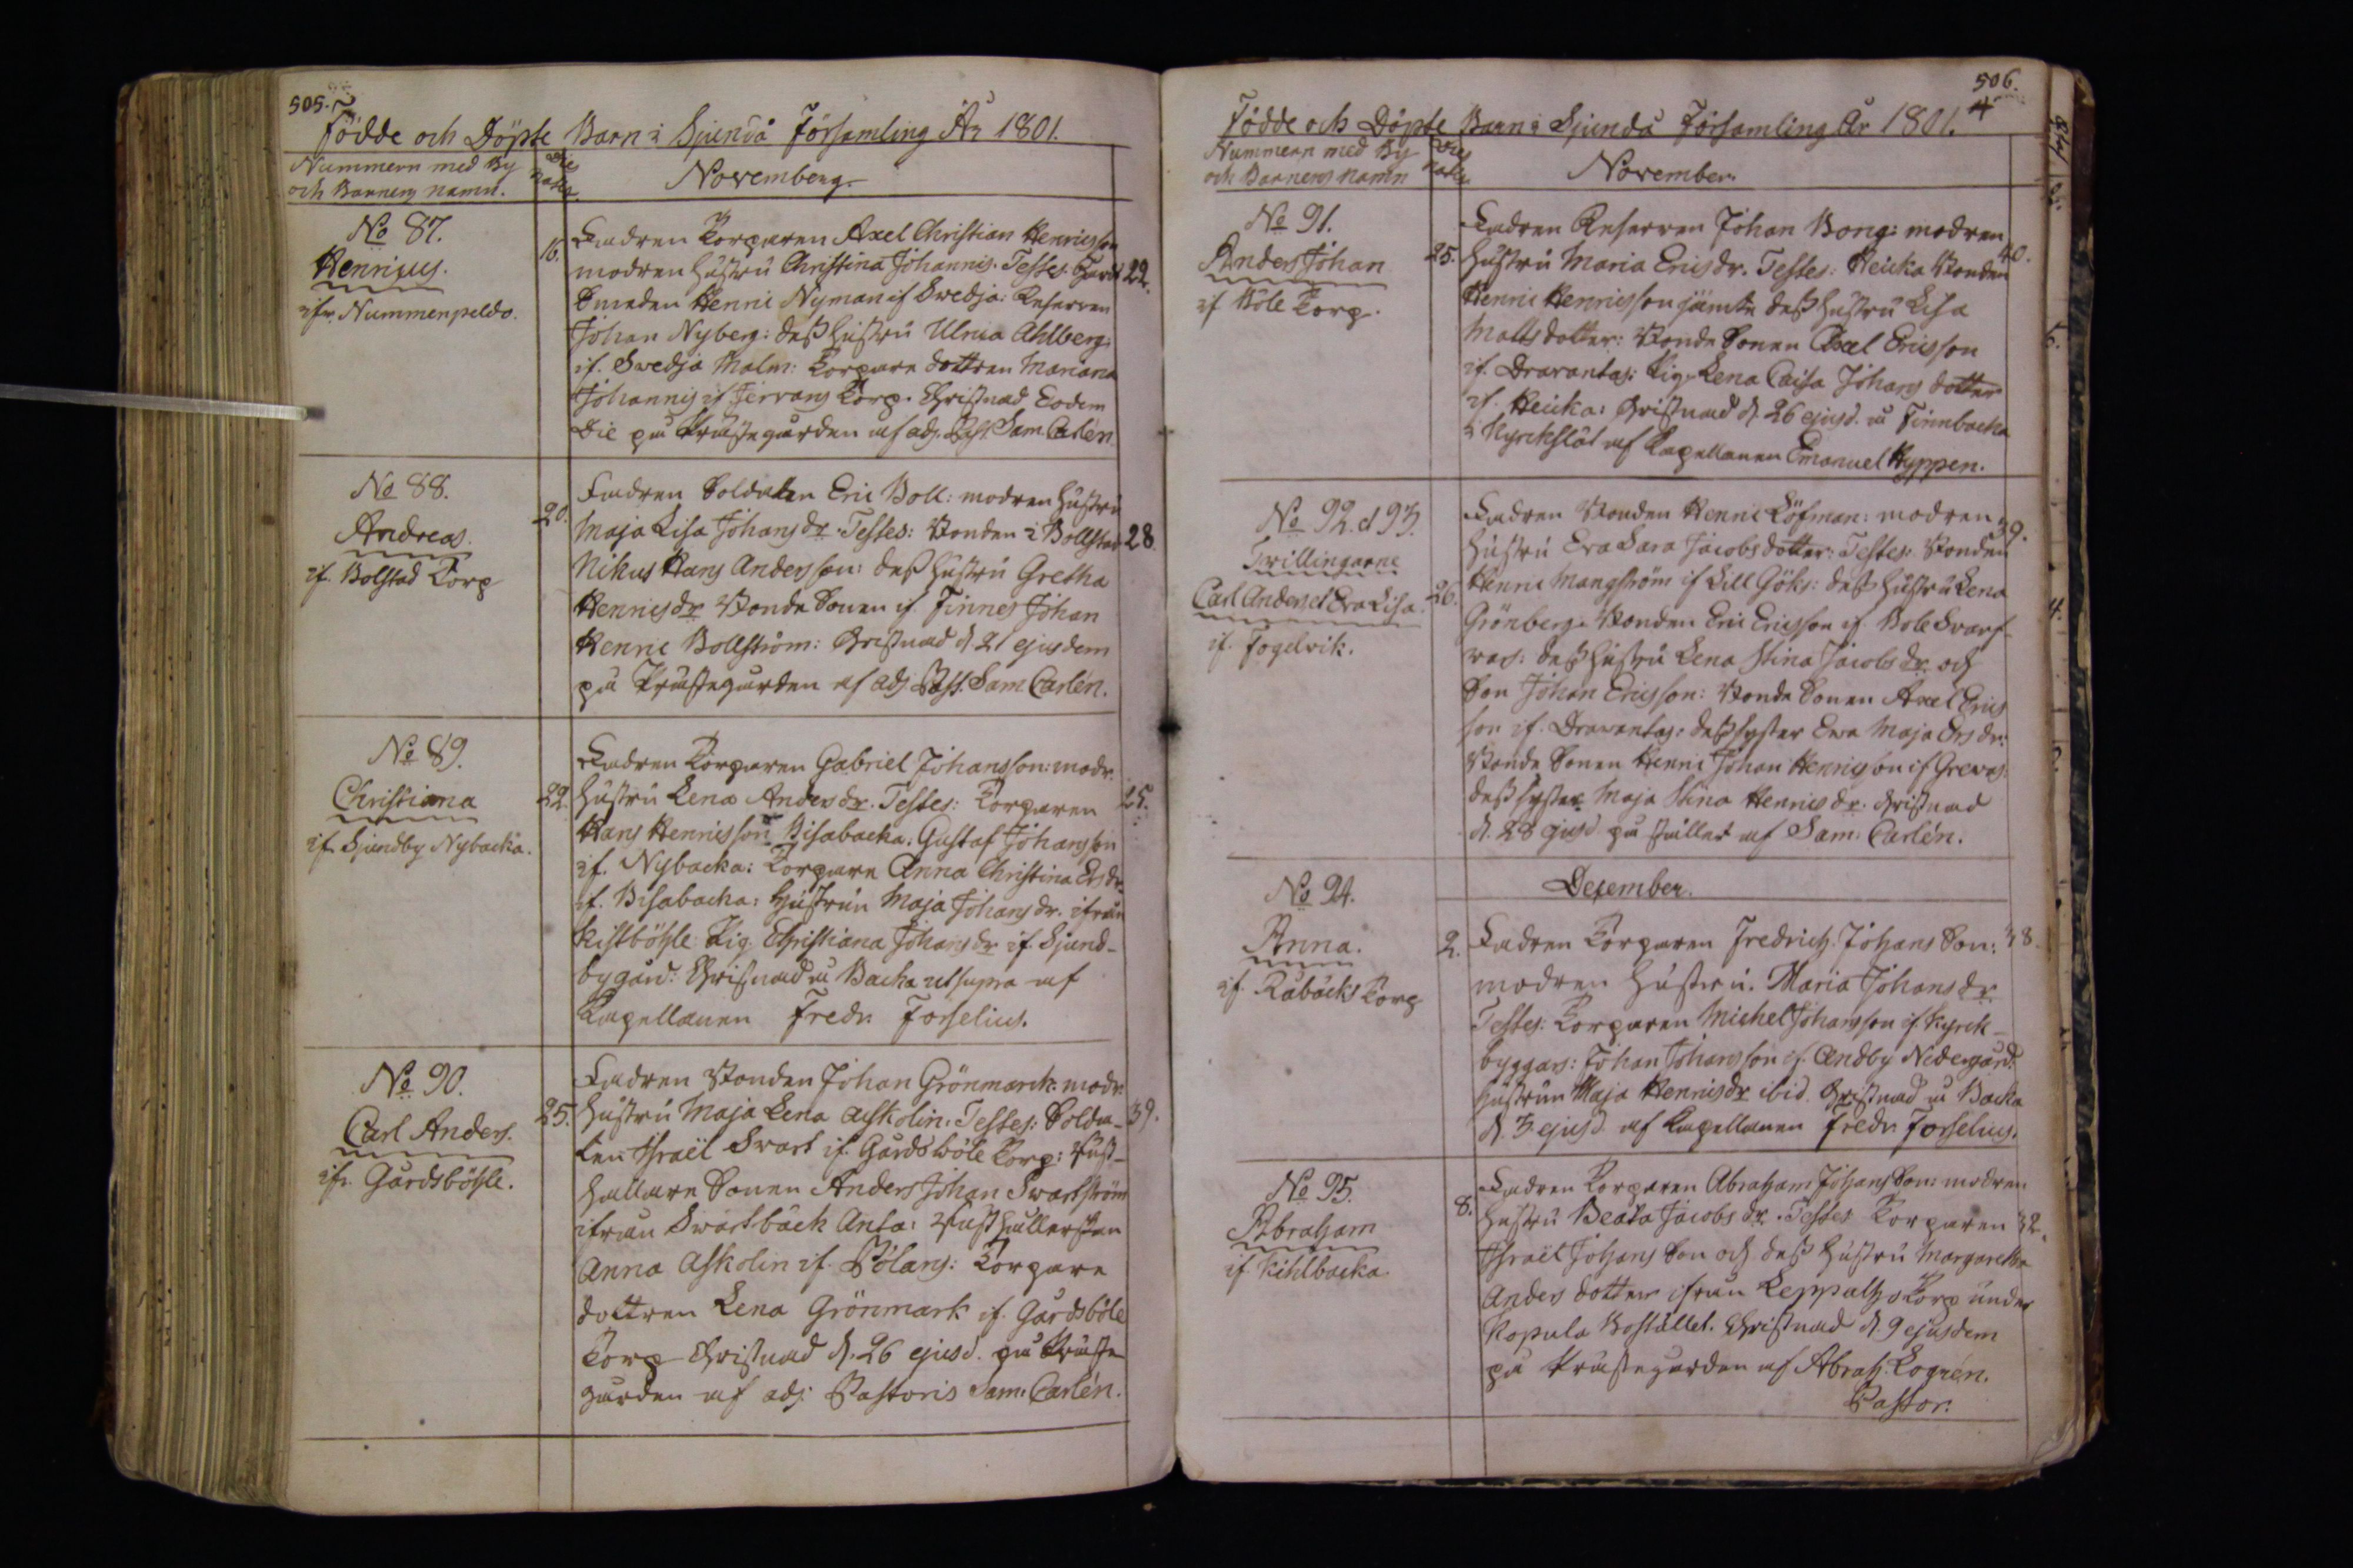 505.
Födde och Döpte Barn i Sjundå Församling År 1801.
Nummern med By
och Barnens namn.
Dies
Natal.
November.
No 87.
Henricus.
ifr. Nummenpeldo.
16.
Fadren Torparen Axel Christian Henricsson
modren hustru Christina Johannis. Testes. Gards
Smeden Henric Nyman if Svedja: Reserven
Johan Nyberg: dess hustru Ulrica Ahlberg
if. Svedja Malm: Torpare dottren Mariana
Johannis if Jervans Torp. Christnad Eodem
Die på Prästegården af adj. Past. Sam Carlén
22.
No 88.
Andreas.
if. Bolstad Torp
20.
Fadren Soldaten Eric Boll: modren hustru
Maja Lisa Johans dr. Testes: Bonden i Bollstad
Nikus Hans Andersson: dess hustru Gretha
Henrics dr Bonde Sonen if. Finnes Johan
Henric Bollström: Christnad d. 21 ejusdem
på Prästegården af adj. Past. Sam Carlén.
28
No 89.
Christiana
if. Sjundby Nybacka.
22.
Fadren Torparen Gabriel Johansson: modr.
hustru Lena Anders dr. Testes: Torparen
Hans Henricsson Bisabacka: Gustaf Johansson
if. Nybacka: Torpare Anna Christina Ersdr.
if. Bisabacka: Hustrun Maja Johans dr. ifrån
Kistböhle Pig. Christiana Johans dr if Sjund-
bygård: Christnad i Backa ut supra af
Kapellanen Fredr. Forselius.
25.
No 90.
Carl Anders.
ifr. Gårdsböhle.
25.
Fadren Bonden Johan Grönmarck: modr.
hustru Maja Lena Askolin: Testes: Solda-
ten Israël Svart if. Gårdsböle Torp: Rust-
hållare Sonen Anders Johan Svartström
ifrån Svartbäck Anta: Rusthållerskan
Anna Askolin if. Pölans: Torpare
dottren Lena Grönmark if. Gårdsböle
Torp Christnad d. 26 ejusd. på Präste
gården af adj. Pastoris Sam: Carlén.
39.
506.
4
Födde och Döpte Barn i Sjundå Församling År 1801.
Nummern med By
och Barnens namn
Dies
Natal.
November.
No 91.
Anders Johan
if Böle Torp.
25.
Fadren Reserven Johan Bong: modren
hustru Maria Erics dr. Testes: Heicka Bonden
Henric Henricsson jämte dess hustru Lisa
Mattsdotter: Bonde Sonen Axel Ericsson
if. Dravantas: Pig. Lena Caisa Johans dotter
if. Heicka: Christnad d. 26 ejusd. i Finnbacka
i Kyrckslät af Kapellanen Emanuel Hyppen.
40.
No 92. et 93.
Tvillingarne
Carl Anders et Eva Lisa.
if. Fogelvik.
26.
Fadren Bonden Henric Löfman: modren
hustru Eva Sara Jacobs dotter: Testes: Bonden
Henric Mangström if Lill Göks: dess hustru Lena
Grönberg: Bonden Eric Ericsson if Bole Svarf-
vas: dess hustru Lena Stina Jacobs dr. och
Son Johan Ericsson: Bonde Sonen Axel Erics
son if. Dravantas: dess syster Eva Maja Ersdr:
Bonde Sonen Henric Johan Henricsson if Grevas:
dess syster Maja Stina Henrics dr. Christnad
d. 28 ejusd. på stället af Sam: Carlén.
39.
December.
No 94.
Anna.
if. Råbäcks Torp
2.
Fadren Torparen Fredrich Johans Son:
modren hustru. Maria Johans dr.
Testes: Torparen Michel Johansson if. Kyrck-
byggars: Johan Johansson if. Andby Nedergård.
hustrun Maja Henrics dr ibid. Christnad i Backa
d. 3 ejusd. af Kapellanen Fredr. Forselius.
38.
No 95.
Abraham
if. Kihlbacka
8.
Fadren Torparen Abraham Johans Son: modren
hustru Beata Jacobs dr. Testes Torparen
Israël Johans Son och dess hustru Margaretha
Anders dotter ifrån Torp under
Kopula Bostället. Christnad d. 9 ejusdem
på Prästegården af Abrah. Logrén.
Pastor.
32.